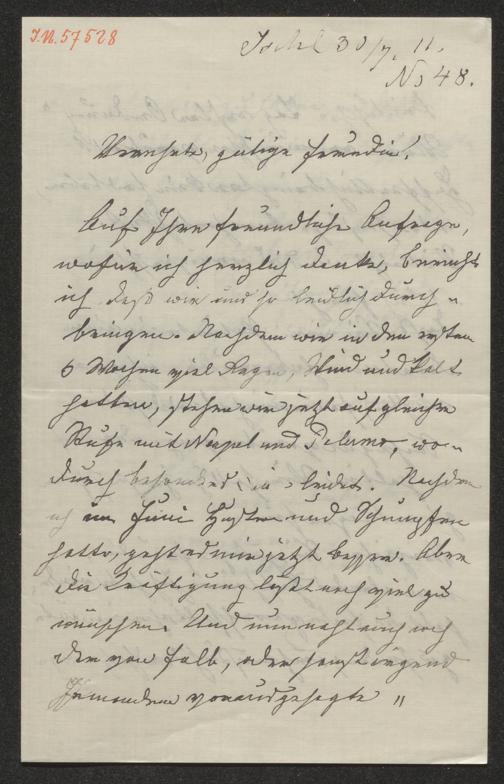 I.N. 57528
Ischl 30/7. 11.
No 48.
Verehrte, gütige Freundin!
Auf Ihre freundliche Anfrage,
wofür ich herzlich danke, berichte
ich daß wir uns so leidlich durch-
bringen. Nachdem wir in den ersten
6 Wochen viel Regen, Wind und Kält
hatten, stehen wir jetzt auf gleicher
Stufe mit Neapel und Palermo, wo-
durch besonders leidet. Nachdem
ich im Juni Husten und Schnupfen
hatte, geht es mir jetzt besser. Aber
die Kräftigung läßt noch viel zu
wünschen. Und nun naht auch noch
der von Falb, oder sonst irgend
Jemandem vorausgesagte "